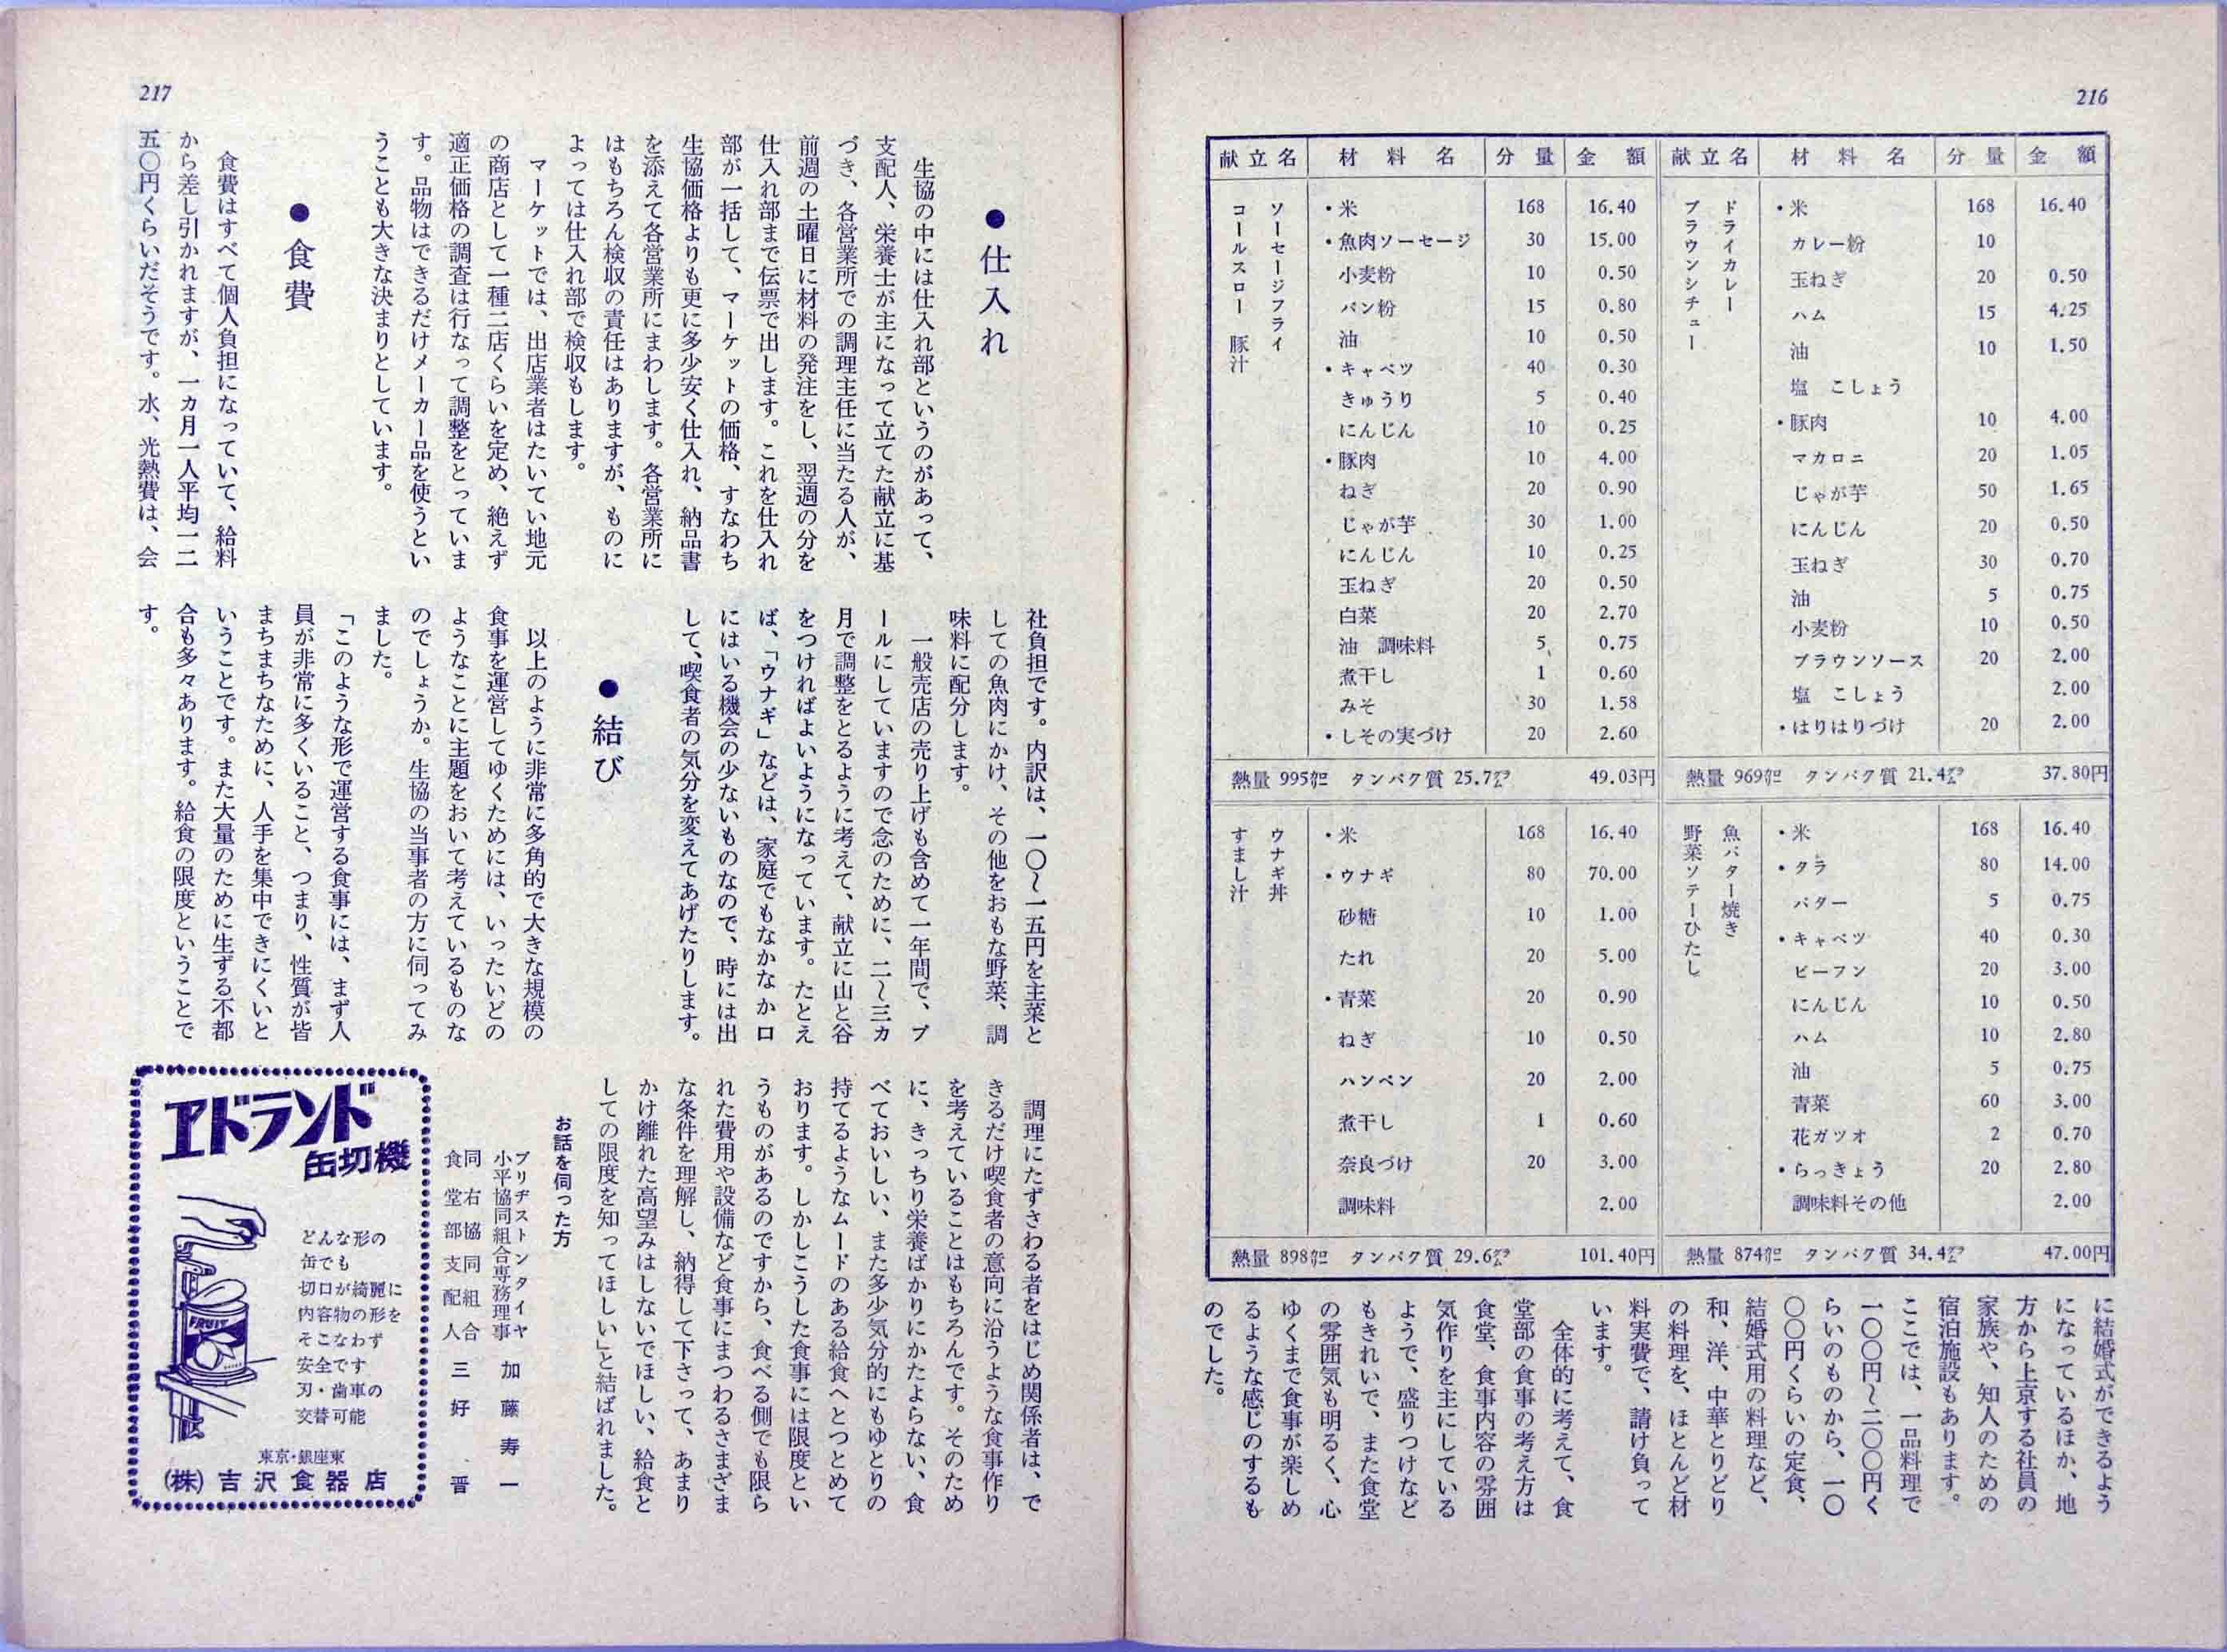 216
献立名 材料名 分量 金額
ドライカレー
ブラウンシチュー
・米 168 16.40
カレー粉 10
玉ねぎ 20 0.50
ハム 15 4.25
油 10 1.50
塩 こしょう
・豚肉 10 4.00
マカロニ 20 1.05
じゃが芋 50 1.65
にんじん 20 0.50
玉ねぎ 30 0.70
油 5 0.75
小麦粉 10 0.50
ブラウンソース 20 2.00
塩 こしょう 2.00
・はりはりづけ 20 2.00
熱量 969㌍ タンパク質 21.4㌘ 37.80円
献立名 材料名 分量 金額
ソーセージフライ
コールスロー 豚汁
・米 168 16.40
・魚肉ソーセージ 30 15.00
小麦粉 10 0.50
パン粉 15 0.80
油 10 0.50
・キャベツ 40 0.30
きゅうり 5 0.40
にんじん 10 0.25
・豚肉 10 4.00
ねぎ 20 0.90
じゃが芋 30 1.00
にんじん 10 0.25
玉ねぎ 20 0.50
白菜 20 2.70
油 調味料 5 0.75
煮干し 1 0.60
みそ 30 1.58
・しその実づけ 20 2.60
熱量 995㌍ タンパク質 25.7㌘ 49.03円
魚バター焼き
野菜ソテーひたし
・米 168 16.40
・タラ 80 14.00
バター 5 0.75
・キャベツ 40 0.30
ビーフン 20 3.00
にんじん 10 0.50
ハム 10 2.80
油 5 0.75
青菜 60 3.00
花ガツオ 2 0.70
・らっきょう 20 2.80
調味料その他 2.00
熱量 874㌍ タンパク質 34.4㌘ 47.00円
ウナギ丼
すまし汁
・米 168 16.40
・ウナギ 80 70.00
砂糖 10 1.00
たれ 20 5.00
・青菜 20 0.90
ねぎ 10 0.50
ハンペン 20 2.00
煮干し 1 0.60
奈良づけ 20 3.00
調味料 2.00
熱量 898㌍ タンパク質 29.6㌘ 101.40円
に結婚式ができるよう
になっているほか、地
方から上京する社員の
家族や、知人のための
宿泊施設もあります。
ここでは、一品料理で
一〇〇円〜二〇〇円く
らいのものから、一〇
〇〇円くらいの定食、
結婚式用の料理など、
和、洋、中華とりどり
の料理を、ほとんど材
料実費で、請け負って
います。
全体的に考えて、食
堂部の食事の考え方は
食堂、食事内容の雰囲
気作りを主にしている
ようで、盛りつけなど
もきれいで、また食堂
の雰囲気も明るく、心
ゆくまで食事が楽しめ
るような感じのするも
のでした。
217
●仕入れ
生協の中には仕入れ部というのがあって、
支配人、栄養士が主になって立てた献立に基
づき、各営業所での調理主任に当たる人が、
前週の土曜日に材料の発注をし、翌週の分を
仕入れ部まで伝票で出します。これを仕入れ
部が一括して、マーケットの価格、すなわち
生協価格よりも更に多少安く仕入れ、納品書
を添えて各営業所にまわします。各営業所に
はもちろん検収の責任はありますが、ものに
よっては仕入れ部で検収もします。
マーケットでは、出店業者はたいてい地元
の商店として一種二店くらいを定め、絶えず
適正価格の調査は行なって調整をとっていま
す。品物はできるだけメーカー品を使うとい
うことも大きな決まりとしています。
●食費
食費はすべて個人負担になっていて、給料
から差し引かれますが、一カ月一人平均一二
五〇円くらいだそうです。水、光熱費は、会
社負担です。内訳は、一〇〜一五円を主菜と
しての魚肉にかけ、その他をおもな野菜、調
味料に配分します。
一般売店の売り上げも含めて一年間で、プ
ールにしていますので念のために、二〜三カ
月で調整をとるように考えて、献立に山と谷
をつければよいようになっています。たとえ
ば、「ウナギ」などは、家庭でもなかなか口
にはいる機会の少ないものなので、時には出
して、喫食者の気分を変えてあげたりします。
●結び
以上のように非常に多角的で大きな規模の
食事を運営してゆくためには、いったいどの
ようなことに主題をおいて考えているものな
のでしょうか。生協の当事者の方に伺ってみ
ました。
「このような形で運営する食事には、まず人
員が非常に多くいること、つまり、性質が皆
まちまちなために、人手を集中できにくいと
いうことです。また大量のために生ずる不都
合も多々あります。給食の限度ということで
す。
調理にたずさわる者をはじめ関係者は、で
きるだけ喫食者の意向に沿うような食事作り
を考えていることはもちろんです。そのため
に、きっちり栄養ばかりにかたよらない、食
べておいしい、また多少気分的にもゆとりの
持てるようなムードのある給食へとつとめて
おります。しかしこうした食事には限度とい
うものがあるのですから、食べる側でも限ら
れた費用や設備など食事にまつわるさまざま
な条件を理解し、納得して下さって、あまり
かけ離れた高望みはしないでほしい、給食と
しての限度を知ってほしい」と結ばれました。
お話を伺った方
ブリヂストンタイヤ
小平協同組合専務理事 加藤寿一
同右協同組合
食堂部支配人 三好晋
エドランド
缶切機
どんな形の
缶でも
切口が綺麗に
内容物の形を
そこなわず
安全です
刃・歯車の
交替可能
FRUIT
東京・銀座東
(株)吉沢食器店